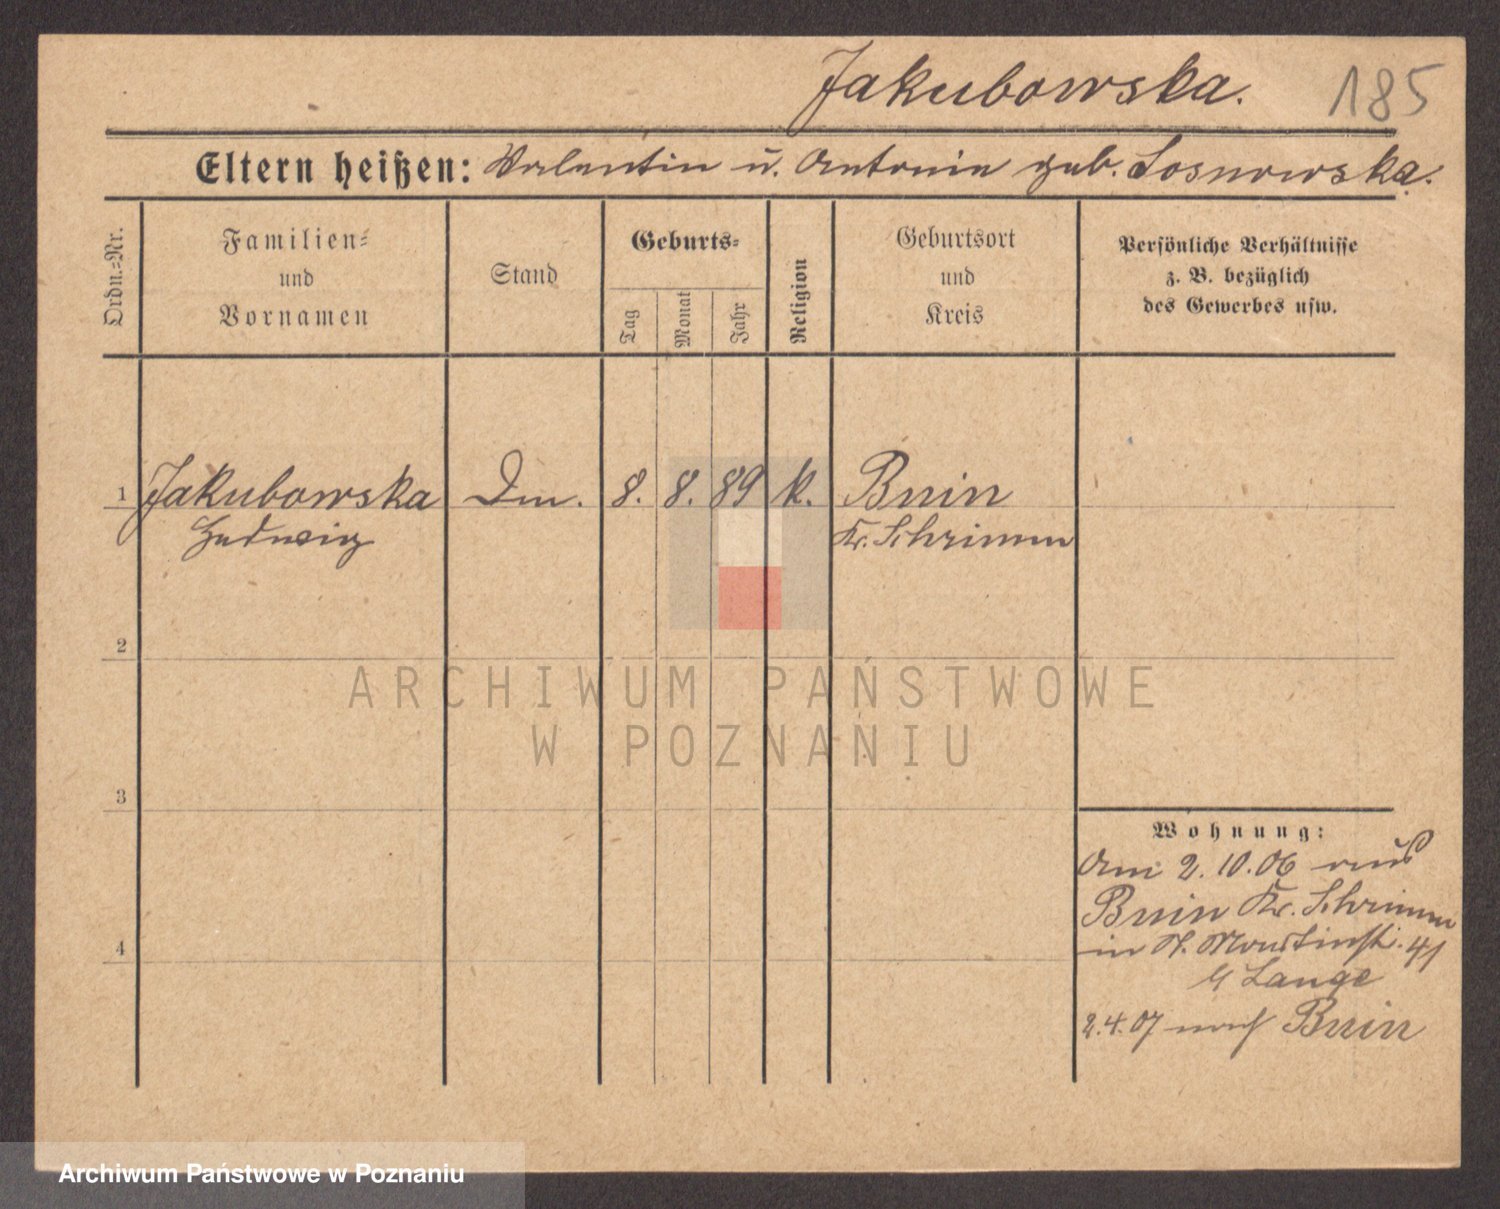 Jakubowska. 185
Eltern heißen: Valentin u. Antonie geb. Sosnowska.
Ordn.=Nr.
Familien=
und
Vornamen
Stand
Geburts=
Tag
Monat
Jahr
Religion
Geburtsort
und
Kreis
Persönliche Verhältnisse
z. B. bezüglich
des Gewerbes usw.
1 Jakubowska Dm. 8. 8. 89 k. Bnin
Hedwig Kr. Schrimm
2
3
4
Wohnung:
Am 2.10.06 aus
Bnin Kr. Schrimm
in St. Martinstr. 41
b/ Lange
2.4.07 nach Bnin
ARCHIWUM PAŃSTWOWE
W POZNANIU
Archiwum Państwowe w Poznaniu